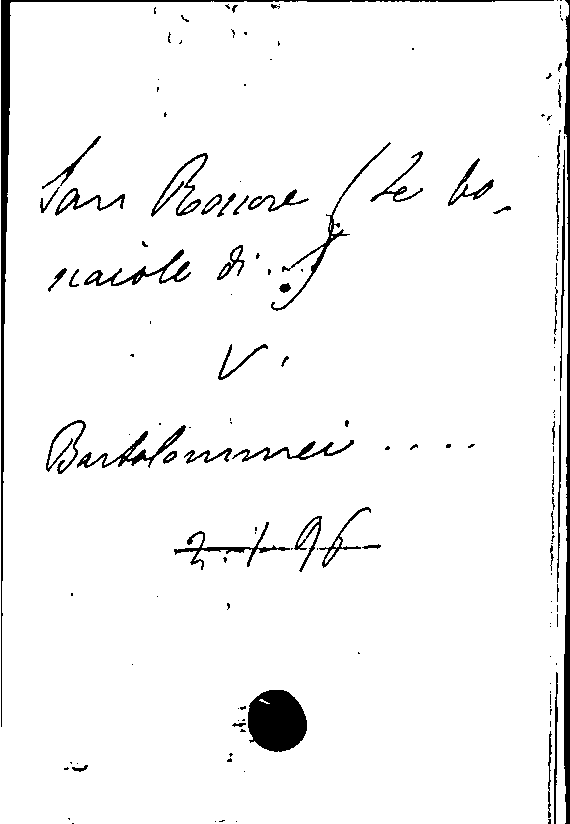 San Rossore (Le bo-
scaiole di ...)
V.
Bartolommei ....
2.1.96